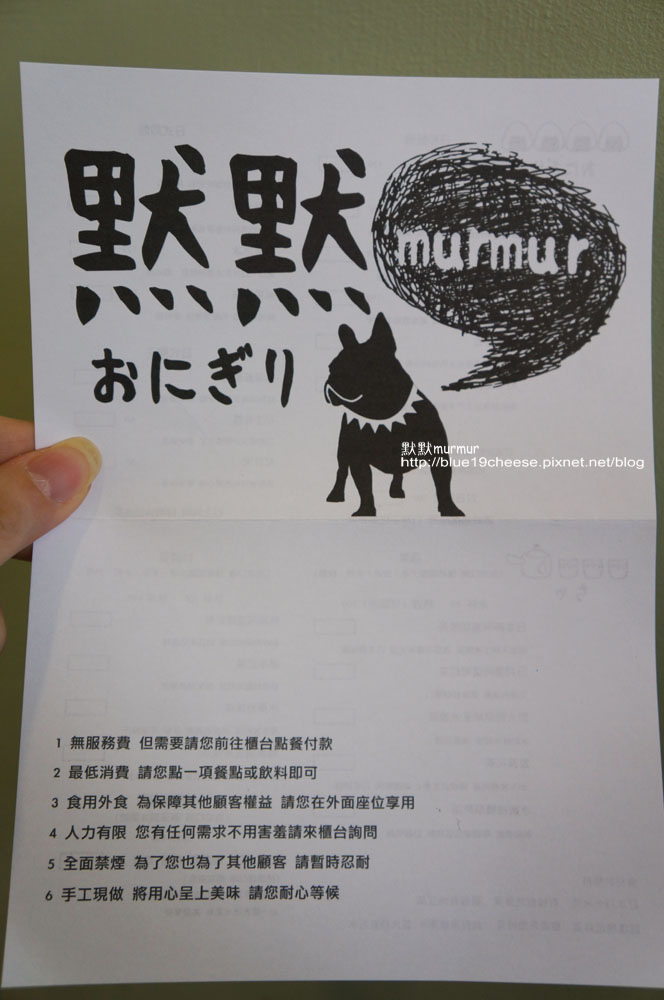 默默
murmur
おにぎり
默默murmur
http://blue19cheese.pixnet.net/blog
1 無服務費 但需要請您前往櫃台點餐付款
2 最低消費 請您點一項餐點或飲料即可
3 食用外食 為保障其他顧客權益 請您在外面座位享用
4 人力有限 您有任何需求不用害羞請來櫃台詢問
5 全面禁煙 為了您也為了其他顧客 請暫時忍耐
6 手工現做 將用心呈上美味 請您耐心等候